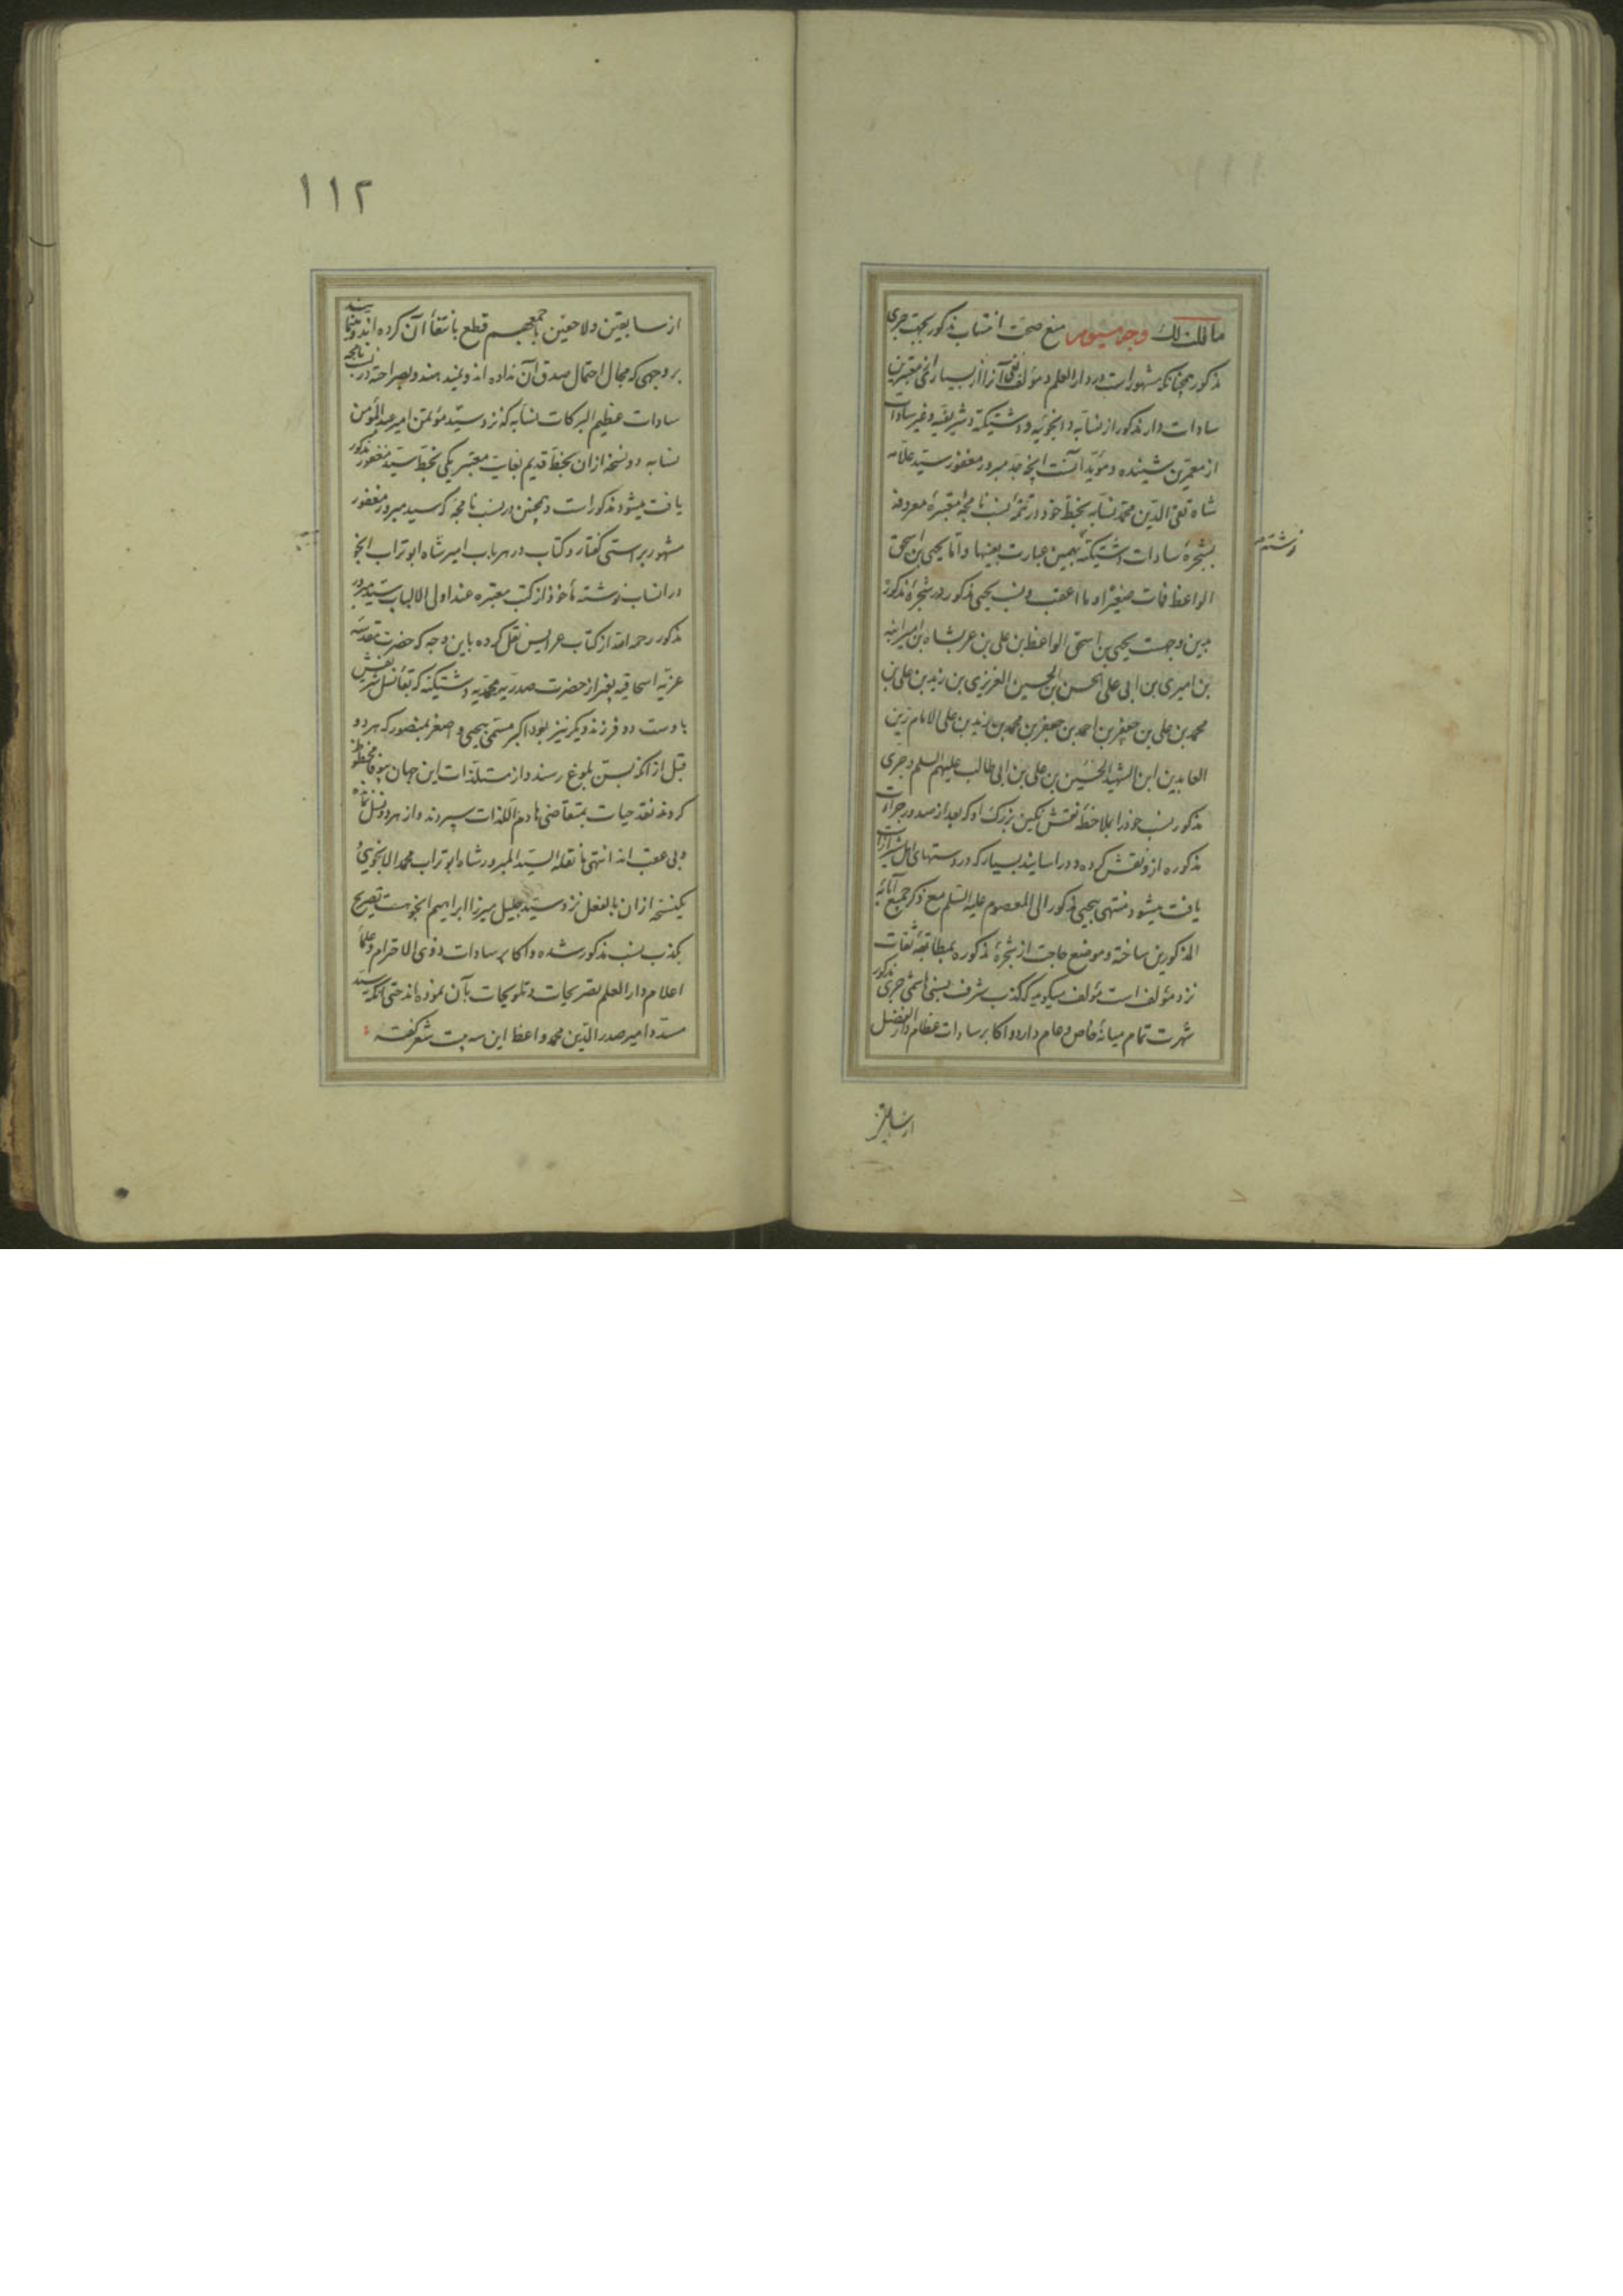 مالک ذلک وجه سیوم منع صحت انتساب مذکور بجهت جری
مذکور چنانکه مشهور است در دار العلم و مؤلف نفی آنرا از بسیاری از معتبرین
سادات دار مذکور از نسابه و انجویه و دشتیکیه و شریفیه و غیر سادات
از معمرین شنیده و مؤید آنست آنچه جد مبرور مغفور سید علامه
شاه تقی الدین محمد نسابه بخط خود در تتمهٔ نسب نامچهٔ معتبرهٔ معروفه
بشجرهٔ سادات دشتیکیه بهمین عبارت بعینها و اما یحیی بن اسحق
نوشته
الواعظ فمات صغیرا و ما اعقب و نسب یحیی مذکور در شجرهٔ مذکوره
بدین وجهست یحیی بن اسحق الواعظ بن علی بن عربشاه بن امیر انبه
بن امیری بن ابی علی الحسن بن الحسین العزیزی بن زید بن علی بن
محمد بن علی بن جعفر بن احمد بن جعفر بن محمد بن زید بن علی الامام زین
العابدین ابن الشهید الحسین بن علی بن ابی طالب علیهم السلم و جری
مذکور نسب خود را بملاحظهٔ نقش نکین بزرک او که بعد از صدور جرأت
مذکوره ازو نقش کرده و در اسانید بسیار که در دستهای اهل شیراز
یافت میشود منتهی بیحیی مذکور الی المعصوم علیه السلم مع ذکر جمیع آبائه
المذکورین ساخته و موضع حاجت از شجرهٔ مذکوره بمطابقهٔ ثقات
نزد مؤلف است مؤلف میکوید که کذب شرف نسبی هاشمی جری مذکور
شهرت تمام میانهٔ خاص و عام دارد و اکابر سادات عظام دار الفضل
از سابقین
۱۱۲
از سابقین و لاحقین باجمعهم قطع بانتفاء آن کرده اند و مینمایند
بر وجهی که مجال احتمال صدق آن نداده اند و نمیدهند و بصراحت در نسب نامچهٔ
سادات عظیم البرکات نسابه که نزد سید مؤتمن امیر عبد المؤمن
نسابه دو نسخه ازان بخط قدیم بغایت معتبر یکی بخط سید مغفور مذکور
یافت میشود مذکور است و همچنین در نسب نامچهٔ که سید مبرور مغفور
مشهور براستی کفتار و کتاب در هر باب امیر شاه ابو تراب انجو
در انساب نوشته مأخوذ از کتب معتبره عند اولی الالباب سید مبرور
مذکور رحمه الله از کتاب عرایس نقل کرده باین وجه که حضرت مقدسه
عزیه اسحاقیه بغیر از حضرت صدریه محمدیه دشتیکیه که بقاء نسل شریفش
باوست دو فرزند دیکر نیز بوده اکبر مسمی بیحیی و اصغر بمنصور که هر دو
قبل از آنکه بسن بلوغ رسند و از مستلذات این جهان بیوفا محظوظ
کردند نقد حیات بمتقاضی هادم اللذات سپردند و از هر دو نسل نمانده
و بی عقب اند انتهی ما نقله السید المبرور شاه ابو تراب محمد الانجوی و
یکنسخه ازان بالفعل نزد سید جلیل میرزا ابراهیم انجوست تصریح
بکذب نسب مذکور شده و اکابر سادات ذوی الاحترام و علماء
اعلام دار العلم تصریحات و تلویحات بآن نموده اند حتی آنکه سید
مسدد امیر صدر الدین محمد واعظ این سه بیت شعر کفته